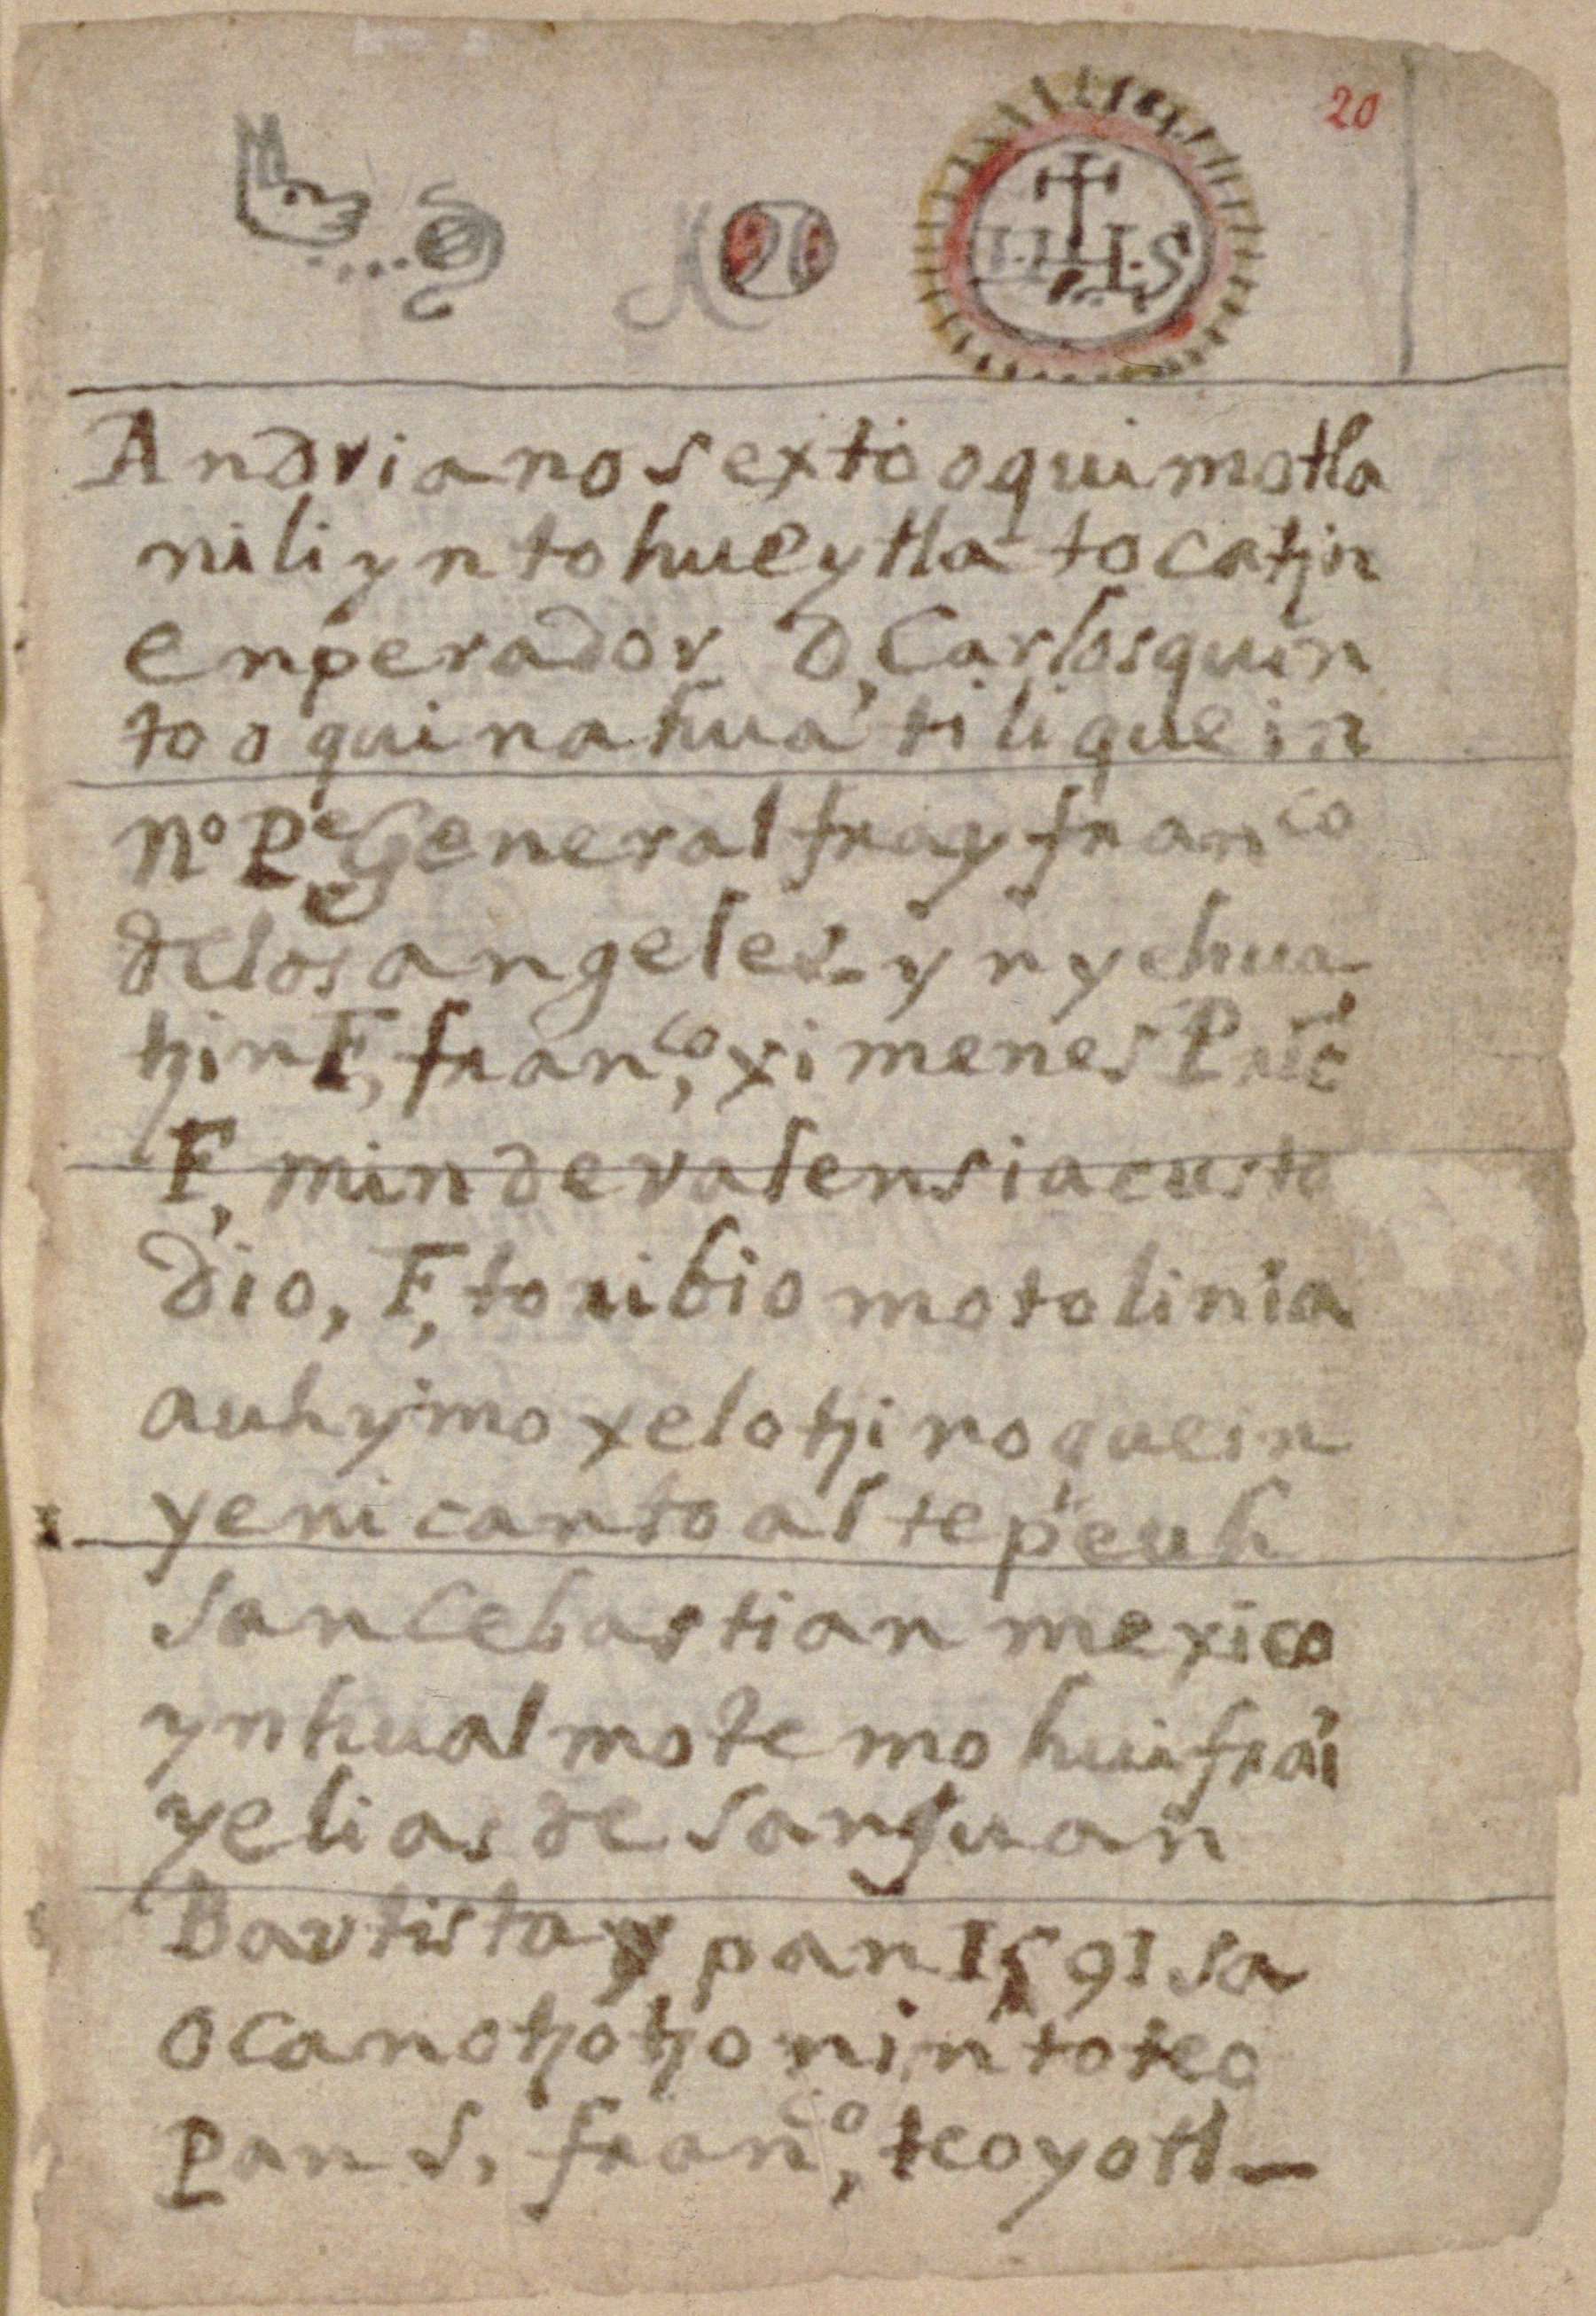 20
IHS
Andriano sexto oquimotla
nili yn tohueytlatocatzin
enperador d, Carlos quin
to oquinahuatilique in
nº Pe General fray franco
de los angeles. yn yehua
tzin F, franco, ximenes
F, min de valensia custo
dio, F, toribio motolinia
auh ymoxelotzinoque in
yenican to altepeuh
San Cebastian mexico
yn hualmotemohui frai
yelias de San Juan
Bautista ypan 1591 sa
ocanotzotzonin toteo
pan S, franco, teoyotl_